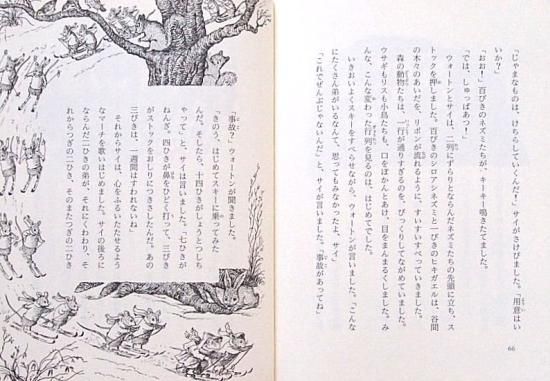 「じゃまなものは、けちらしていくんだ！」サイがさけびました。「用意はい
いか？」
「おお！」百ぴきのネズミたちが、キーキー鳴きたてました。
「では、しゅっぱあつ！」
ウォートンとサイは、二列にずらりとならんだネズミたちの先頭に立ち、ス
トックを押しました。百ぴきのシロアシネズミと一ぴきのヒキガエルは、谷間
の木々のあいだを、リボンが流れるように、すいすいすべっていきました。
森の動物たちは、一行が通りすぎるのを、びっくりしてながめていました。
ウサギもリスも小鳥たちも、口をぽかんとあけ、目をまんまるくしました。み
んな、こんな変わった行列を見るのは、はじめてでした。
いきおいよくスキーをすべらせながら、ウォートンが言いました。「こんな
にたくさん弟がいるなんて、思ってもみなかったよ、サイ」
「これでぜんぶじゃないんだ」と、サイが言いました。「事故があってね」
66
「事故？」ウォートンが聞きました。
「きのう、はじめてスキーに乗ってみた
んだ。そしたら、十四ひきがしょうとつしち
ゃって」と、サイは言いました。「七ひきが
ねんざ。四ひきが鼻をひどく打って、三びき
がストックをおしりにつきさしたんだ。あの
三びきは、一週間はすわれないね」
それからサイは、心をふるいたたせるよう
なマーチを歌いはじめました。サイの後ろに
ならんだ二ひきの弟が、それにくわわり、そ
れからつぎの二ひき、そのまたつぎの二ひき